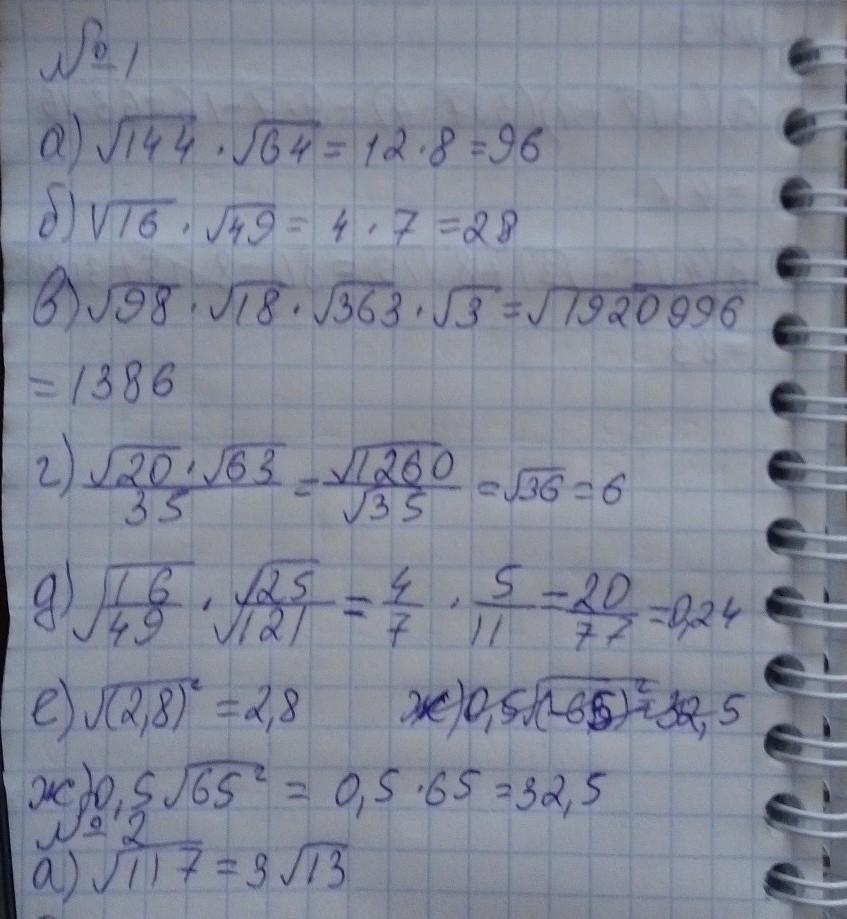 № 1
а) √144 · √64 = 12 · 8 = 96
б) √16 · √49 = 4 · 7 = 28
в) √98 · √18 · √363 · √3 = √1920996
= 1386
г) √20 · √63 / 35 = √1260 / √35 = √36 = 6
д) √16 / √49 · √25 / √121 = 4/7 · 5/11 = 20/77 = 0,24
е) √(2,8)² = 2,8 ж) 0,5√(-65)² = 32,5
ж) 0,5√65² = 0,5 · 65 = 32,5
№ 2
а) √117 = 3√13